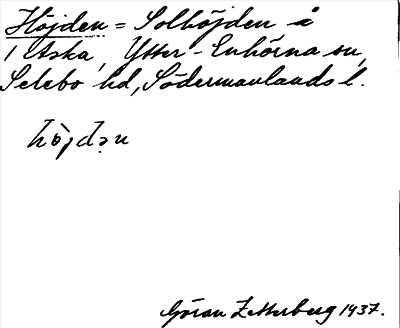 Höjden = Solhöjden å
1 Aska, Ytter-Enhörna sn,
Selebo hd, Södermanlands l.
hö̀jdǝn
Göran Zetterberg 1937.